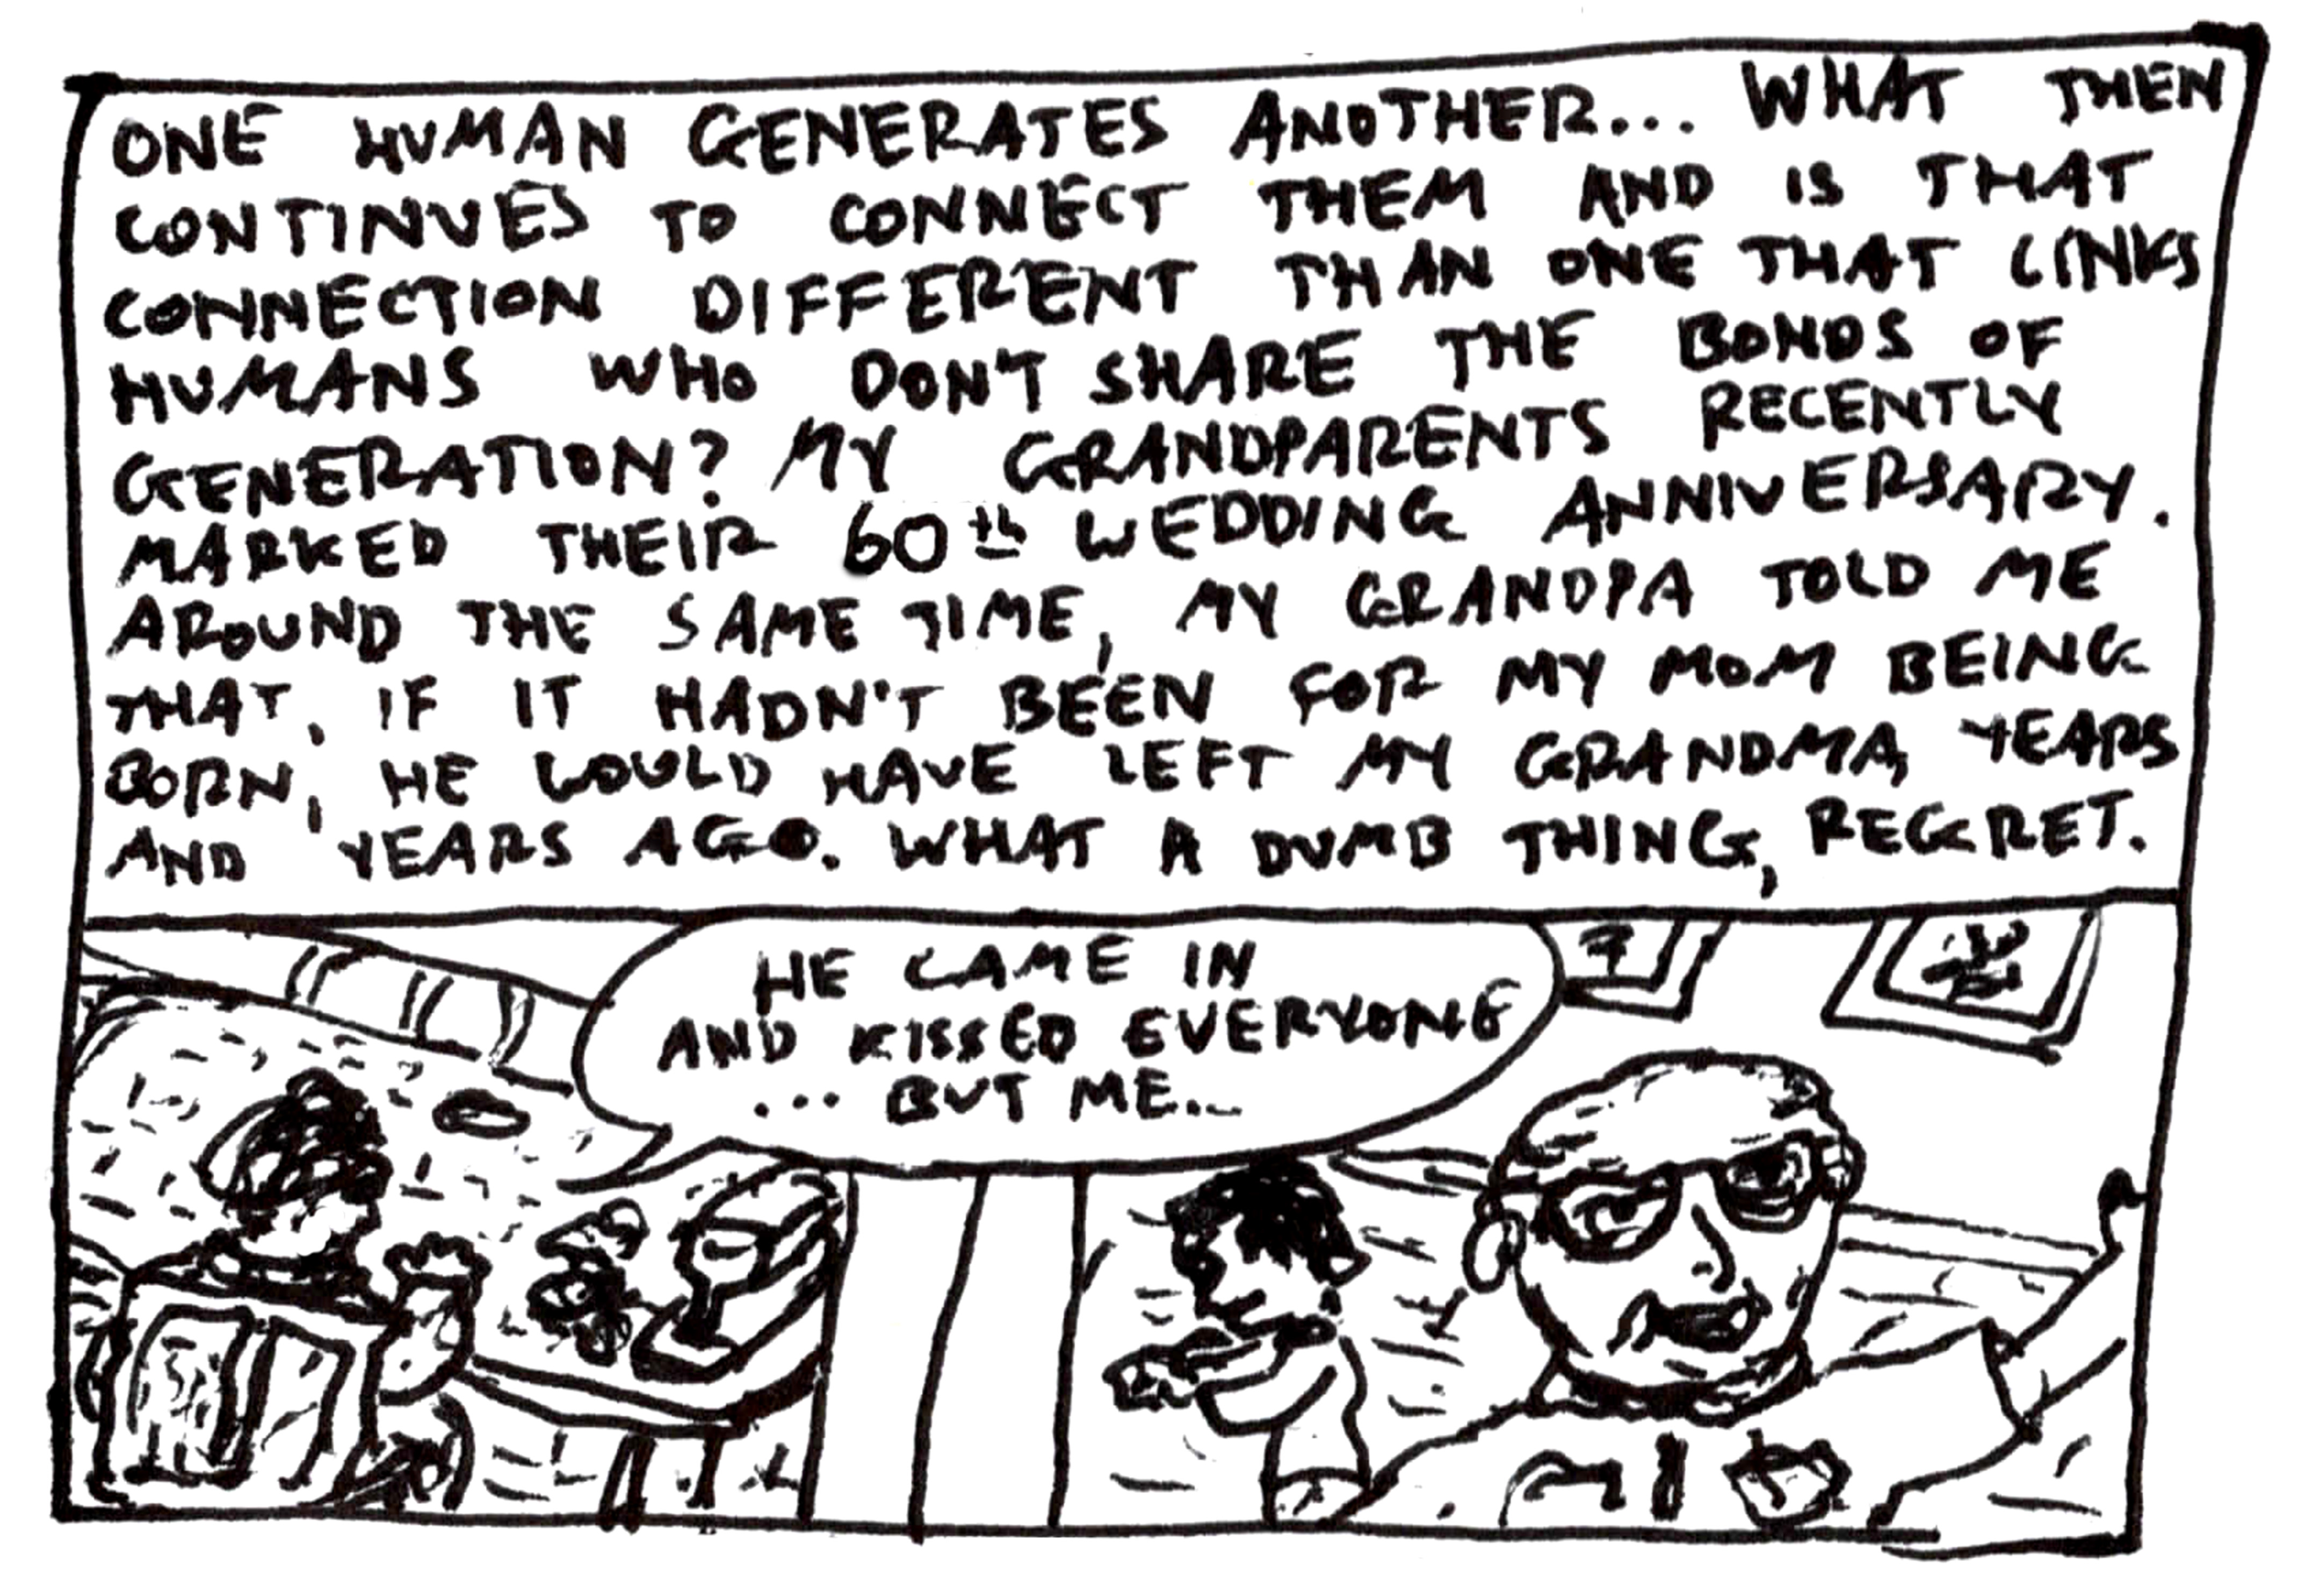 ONE HUMAN GENERATES ANOTHER... WHAT THEN
CONTINUES TO CONNECT THEM AND IS THAT
CONNECTION DIFFERENT THAN ONE THAT LINKS
HUMANS WHO DON'T SHARE THE BONDS OF
GENERATION? MY GRANDPARENTS RECENTLY
MARKED THEIR 60th WEDDING ANNIVERSARY.
AROUND THE SAME TIME, MY GRANDPA TOLD ME
THAT, IF IT HADN'T BEEN FOR MY MOM BEING
BORN, HE WOULD HAVE LEFT MY GRANDMA YEARS
AND YEARS AGO. WHAT A DUMB THING, REGRET.
HE CAME IN
AND KISSED EVERYONE
... BUT ME...